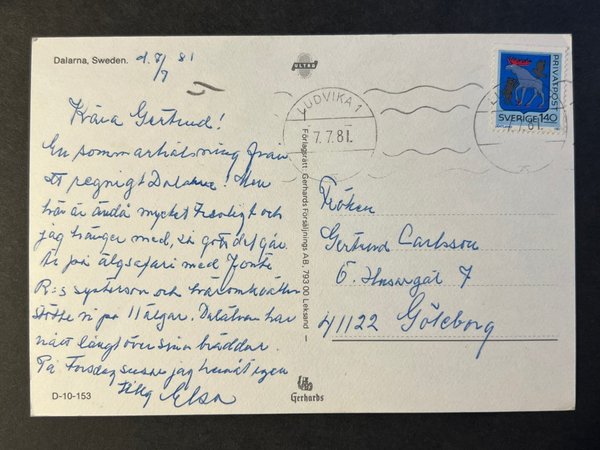 Dalarna, Sweden.
d. 7/7 81
ULTRA
Kära Gertrud!
En sommarhälsning från
ett regnigt Dalarna! Men
här är ändå mycket trevligt och
jag hänger med, så gott det går.
Är på älgsafari med
R:s systerson och häromkvällen
stötte vi på 11 älgar. Dalälven har
nått långt över sina bräddar.
På Torsdag susar jag hemåt igen
Elsa
D-10-153
Förlagsrätt Gerhards Försäljnings AB, 793 00 Leksand
Gerhards
LUDVIKA 1
7.7.81.
LUDVIKA
7.7.81.
PRIVATPOST
SVERIGE 140
Fröken
Gertrud Carlsson
Ö. Husargat 7
41122 Göteborg